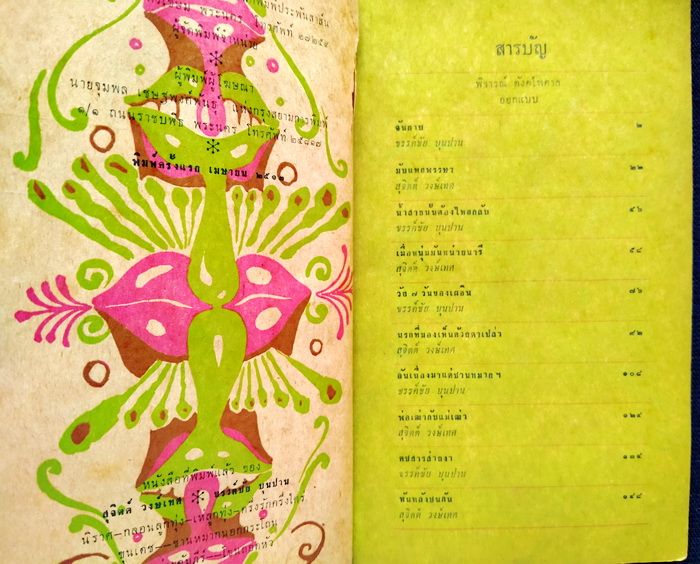 ผู้จัดพิมพ์จำหน่าย
ผู้พิมพ์ผู้โฆษณา
นายจุมพล
๑/๑ ถนนราชบพิธ พระนคร โทรศัพท์
พิมพ์ครั้งแรก เมษายน ๒๕๑๒
หนังสือที่พิมพ์แล้ว ของ
สุจิตต์ วงษ์เทศ ขรรค์ชัย บุนปาน
นิราศ—กลอนลูกทุ่ง—เห่ลูกทุ่ง—ครึ่งรักครึ่งใคร่
ขุนเดช—ชานหมากนอกกระโถน
สารบัญ
ออกแบบ
ขรรค์ชัย บุนปาน
มันแทตหรรษา ๒๒
สุจิตต์ วงษ์เทศ
น้ำสายนั้นต้องไหลกลับ ๔๖
ขรรค์ชัย บุนปาน
เมื่อหนุ่มมันหน่ายนารี ๕๘
สุจิตต์ วงษ์เทศ
วัย ๗ วันของเถลิน ๗๖
ขรรค์ชัย บุนปาน
นรกที่มองเห็นด้วยตาเปล่า ๙๒
สุจิตต์ วงษ์เทศ
อันเนื่องมาแต่ชานหมาก ฯ ๑๐๘
ขรรค์ชัย บุนปาน
พ่อเฒ่ากับแม่เฒ่า ๑๒๔
สุจิตต์ วงษ์เทศ
คชสารส่ายงา
ขรรค์ชัย บุนปาน
หันหลังชนกัน ๑๔๘
สุจิตต์ วงษ์เทศ